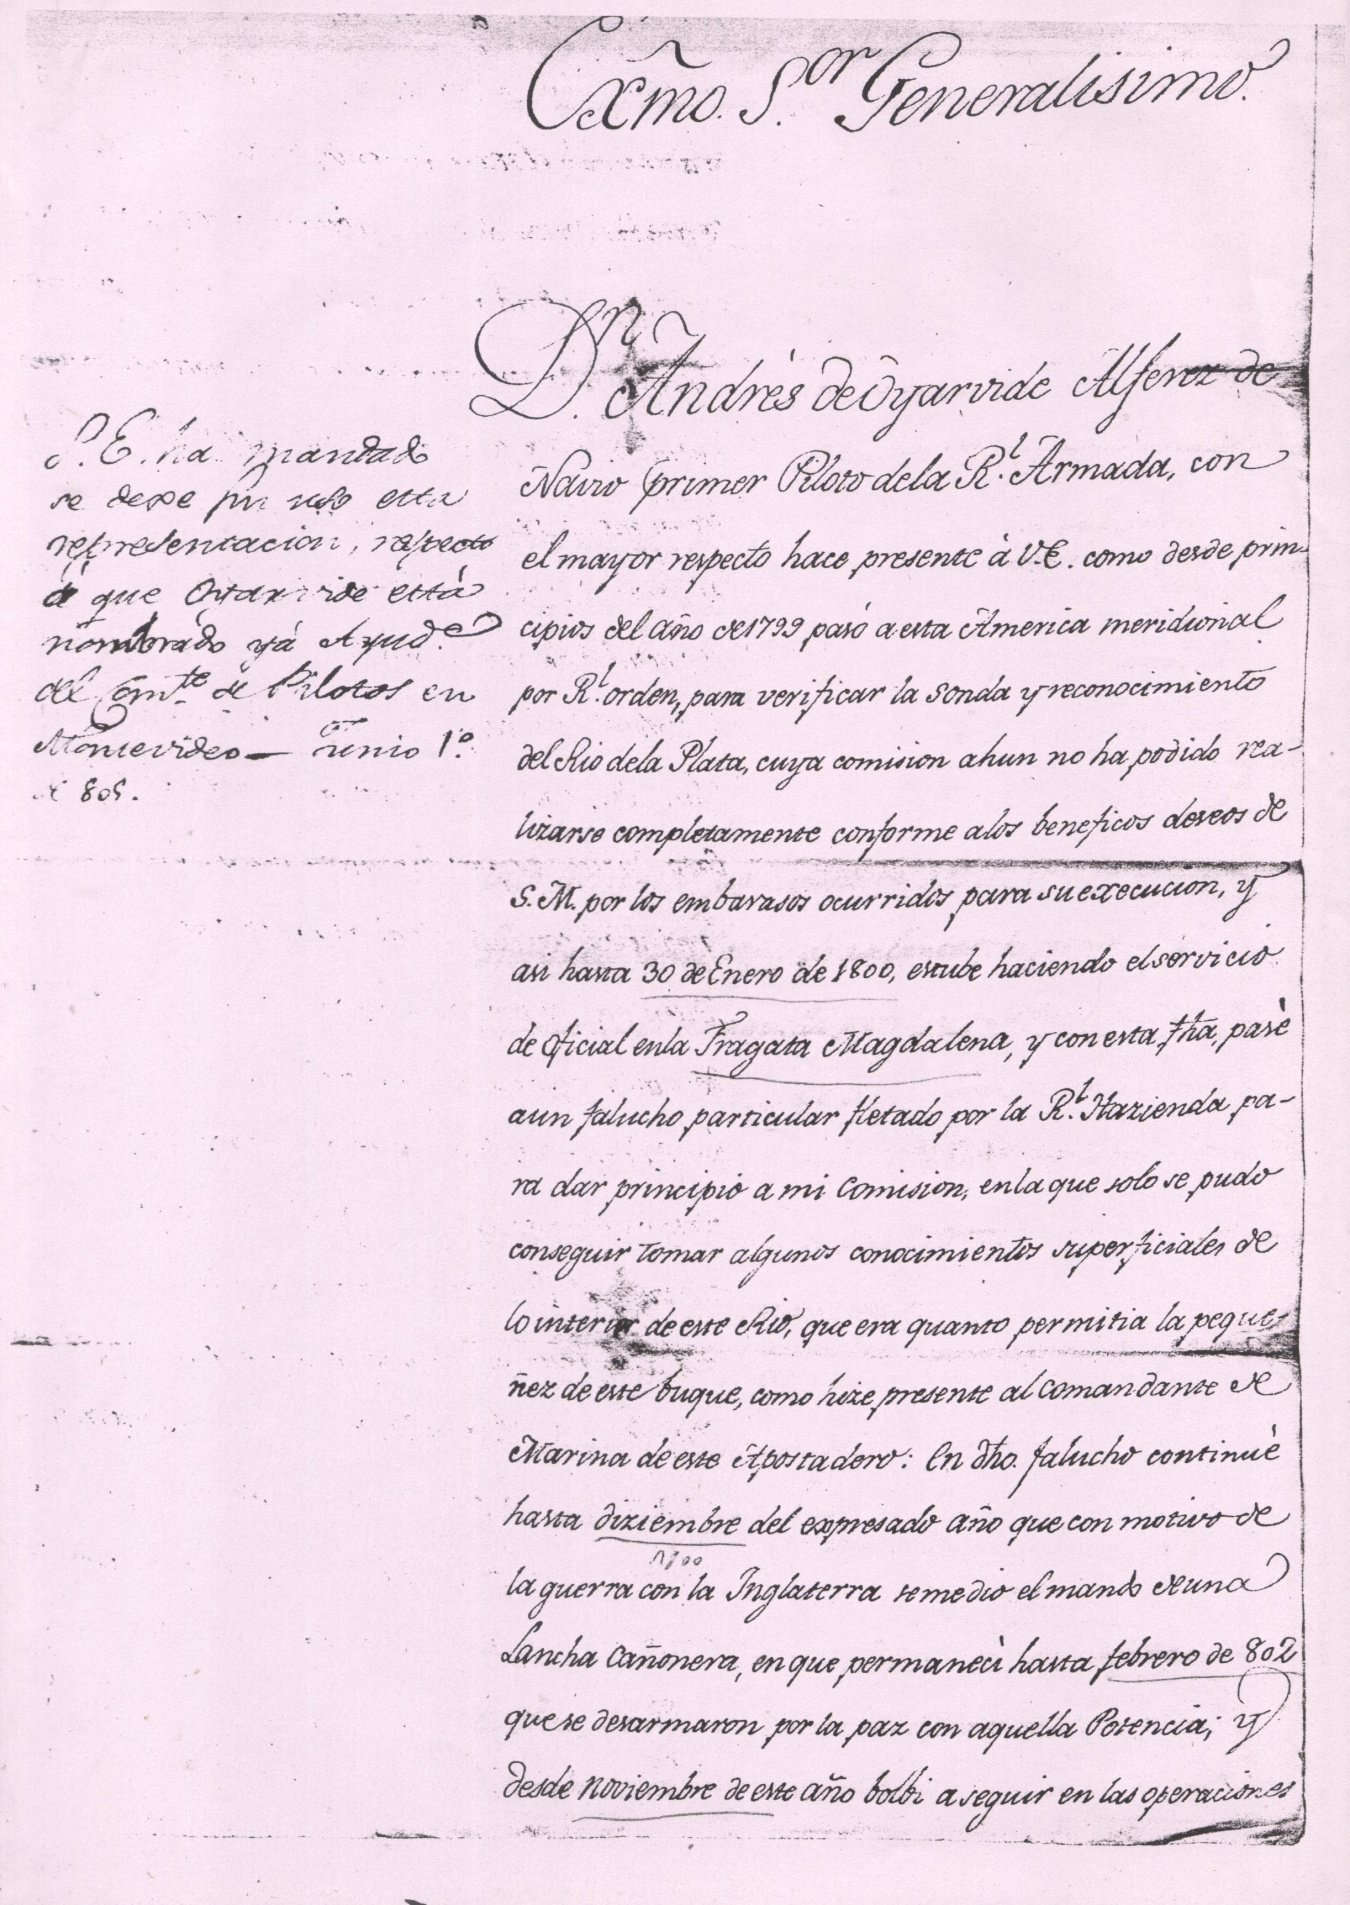 Exmõ. S.or Generalisimo.
S. E. ha mandado
se dexe sin uso esta
representacion, respecto
à que Oyarvide está
nombrado yá Ayud.e
del Com.te de Pilotos en
Montevideo — Junio 1.º
de 805.
D.n Andrès de Oyarvide Alferez de
Navio primer Piloto de la R.l Armada, con
el mayor respecto hace presente à V.E. como desde prin-
cipios del año de 1799 pasó a esta America meridional
por R.l orden, para verificar la sonda y reconocimiento
del Rio de la Plata, cuya comision ahun no ha podido rea-
lizarse completamente conforme a los beneficos deseos de
S. M. por los embarasos ocurridos para su execucion, y
asi hasta 30 de Enero de 1800, estube haciendo el servicio
de oficial en la Fragata Magdalena, y con esta fha, pasè
a un falucho particular fletado por la R.l Hazienda pa-
ra dar principio a mi Comision, en la que solo se pudo
conseguir tomar algunos conocimientos superficiales de
lo interior de este Rio, que era quanto permitia la peque-
ñez de este buque, como hize presente al Comandante de
Marina de este Apostadero: En dho. falucho continuè
hasta diziembre del expresado año que con motivo de
1800
la guerra con la Inglaterra se me dio el mando de una
Lancha Cañonera, en que permaneci hasta febrero de 802
que se desarmaron por la paz con aquella Potencia; y
desde noviembre de este año bolbi a seguir en las operaciones